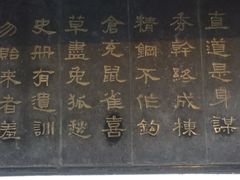 直道是身謀
秀幹終成棟
精鋼不作鈎
倉充鼠雀喜
草盡兔狐愁
史冊有遺訓
勿貽來者羞